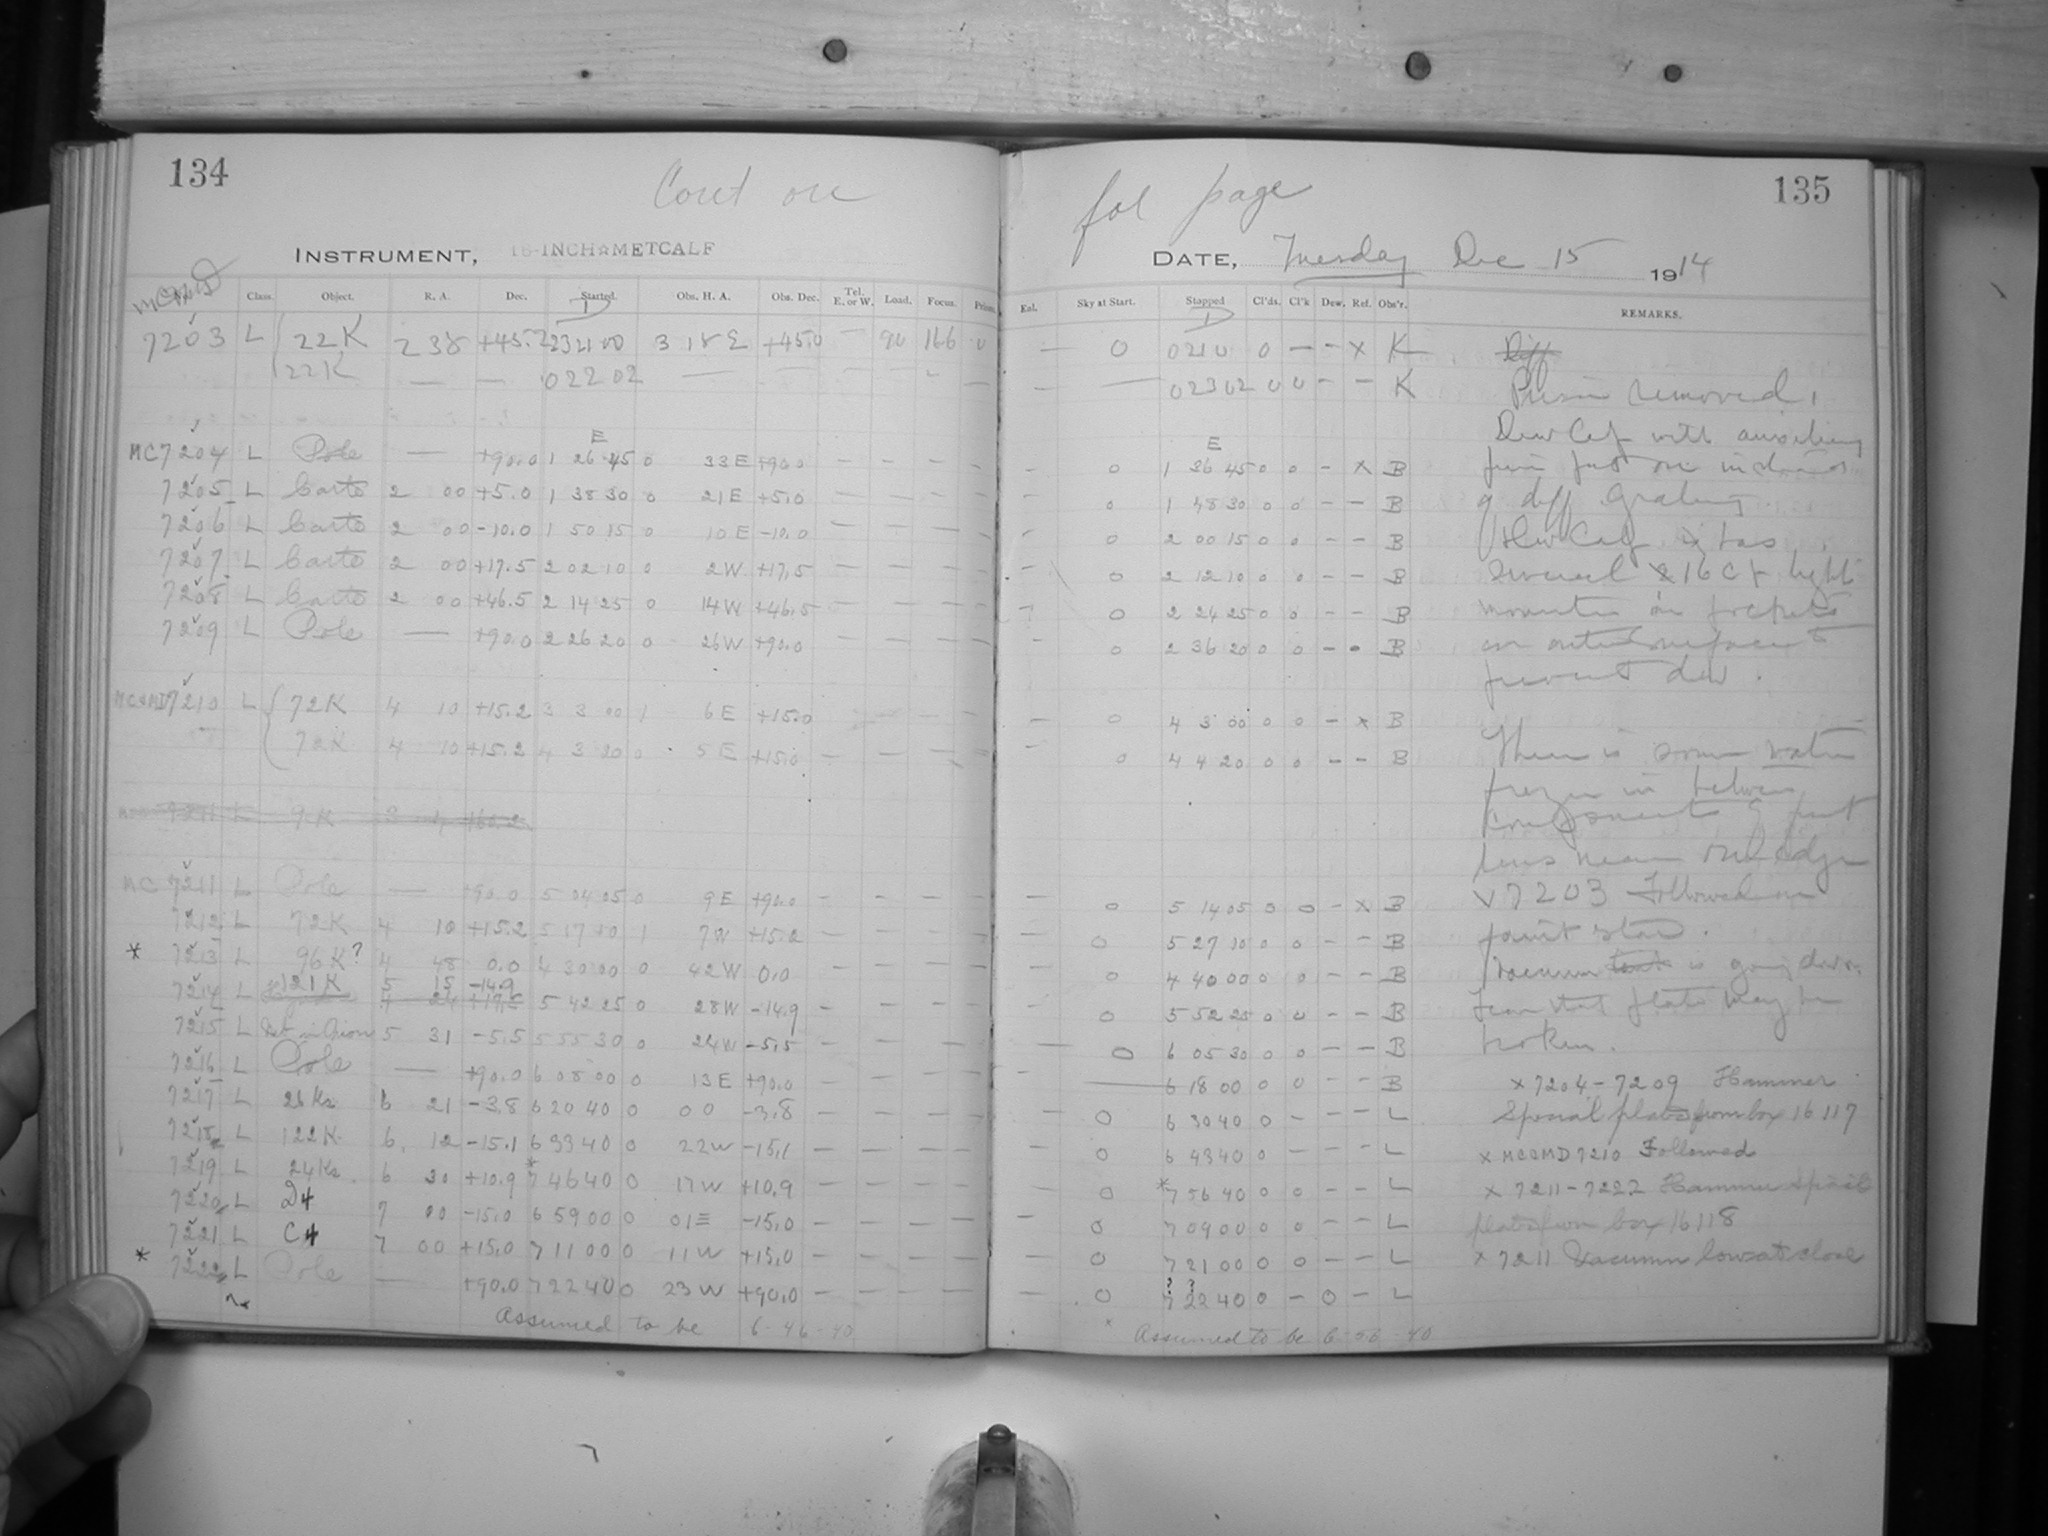 134
Cont on
INSTRUMENT, 16-INCH☆METCALF
Class. Object. R. A. Dec. Started. Obs. H. A. Obs. Dec. Tel. E. or W. Load. Focus.
D
7203 L 22K 2 38 +45.2 23 21 00 3 18 E +45.0 — 90 166 0
22K — — 02202 — — — —
E
MC7204 L Pole — +90.0 1 26 45 0 33E +90.0 — — — —
7205 L Carte 2 00 +5.0 1 38 30 0 21E +5.0 — — — —
7206 L Carte 2 00 -10.0 1 50 15 0 10E -10.0 — — — —
7207 L Carte 2 00 +17.5 2 02 10 0 2W +17.5 — — — —
7208 L Carte 2 00 +46.5 2 14 25 0 14W +46.5 — — — —
7209 L Pole — +90.0 2 26 20 0 26W +90.0 — — — —
MC&MD7210 L 72K 4 10 +15.2 3 3 00 1 6E +15.0 — — — —
72K 4 10 +15.2 4 3 20 0 5E +15.0 — — — —
7211 L 9K 3
MC 7211 L Pole — +90.0 5 04 05 0 9E +90.0 — — — —
7212 L 72K 4 10 +15.2 5 17 10 1 7W +15.2 — — — —
* 7213 L 96K? 4 48 0.0 4 30 00 0 42W 0.0 — — — —
121K 5 15 -14.9
7214 L 4 24 5 42 25 0 28W -14.9 — — — —
7215 L Neb in Orion 5 31 -5.5 5 55 30 0 24W -5.5 — — — —
7216 L Pole — +90.0 6 08 00 0 13E +90.0 — — — —
7217 L 26Ks 6 21 -3.8 6 20 40 0 00 -3.8 — — — —
7218 L 122K 6 12 -15.1 6 33 40 0 22W -15.1 — — — —
7219 L 24Ks 6 30 +10.9 *7 46 40 0 17W +10.9 — — — —
7220 L D4 7 00 -15.0 6 59 00 0 01E -15.0 — — — —
7221 L C4 7 00 +15.0 7 11 00 0 11W +15.0 — — — —
* 7222 L Pole — +90.0 7 22 40 0 23W +90.0 — — — —
Assumed to be 6-46-40
135
fol page
DATE, Tuesday Dec 15 1914
Exl. Sky at Start. Stopped Cl'ds. Cl'k Dew. Ref. Obs'r. REMARKS.
D
— 0 0210 0 — — x K Diff
— — 02302 0 0 — — K Prism removed,
Dew Cap with auxiliary
E
— 0 1 36 45 0 0 — x B
0 1 48 30 0 0 — — B of diff Grating
0 2 00 15 0 0 — — B Dew Cap has
0 2 12 10 0 0 — — B several 16 Cp light
0 2 24 25 0 0 — — B mounted in pockets
0 2 36 20 0 0 — • B on outside surface to
prevent dew.
— 0 4 3 00 0 0 — x B
— 0 4 4 20 0 0 — — B There is some water
frozen in between
components of front
lens near the edge
— 0 5 14 05 0 0 — x B v 7203 Followed on
— 0 5 27 10 0 0 — — B faint star.
— 0 4 40 00 0 0 — — B Vacuum tank is going down
— 0 5 52 25 0 0 — — B Fear that plate may be
— 0 6 05 30 0 0 — — B broken.
— 6 18 00 0 0 — — B x 7204-7209 Hammer
— 0 6 30 40 0 — — — L Special plates from box 16117
0 6 43 40 0 — — — L x MC&MD7210 Followed
— 0 *7 56 40 0 0 — — L x 7211-7222 Hammer Special
— 0 7 09 00 0 0 — — L plates from box 16118
— 0 7 21 00 0 0 — — L x 7211 Vacuum low at close
? ?
— 0 7 22 40 0 — 0 — L
* Assumed to be 6-56-40